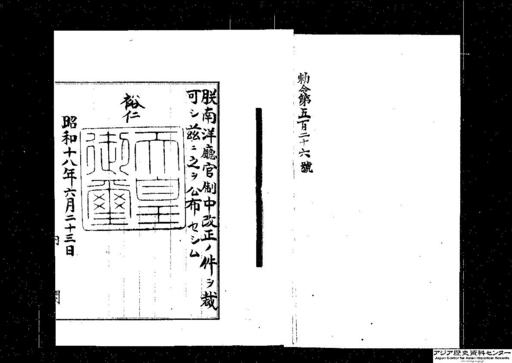 勅令第五百二十六號
朕南洋廳官制中改正ノ件ヲ裁
可シ茲ニ之ヲ公布セシム
裕仁
天皇
御璽
昭和十八年六月二十三日
アジア歴史資料センター
Japan Center for Asian Historical Records